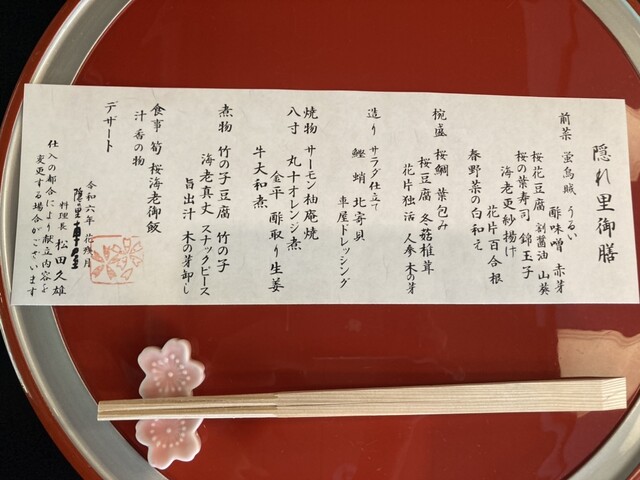 隠れ里御膳
前菜 蛍烏賊 うるい
酢味噌 赤芽
桜花豆腐 割醤油 山葵
桜の葉寿司 錦玉子
海老更紗揚げ
花片百合根
春野菜の白和え
椀盛 桜鯛 葉包み
桜豆腐 冬菇椎茸
花片独活 人参 木の芽
造り サラダ仕立て
鰹 蛸 北寄貝
車屋ドレッシング
焼物 サーモン柚庵焼
八寸 丸十オレンジ煮
金平 酢取り生姜
牛大和煮
煮物 竹の子豆腐 竹の子
海老真丈 スナックピース
旨出汁 木の芽卸し
食事 筍 桜海老御飯
汁 香の物
デザート
令和六年 花残月
隠れ里
料理長 松田久雄
仕入の都合により献立内容を
変更する場合がございます